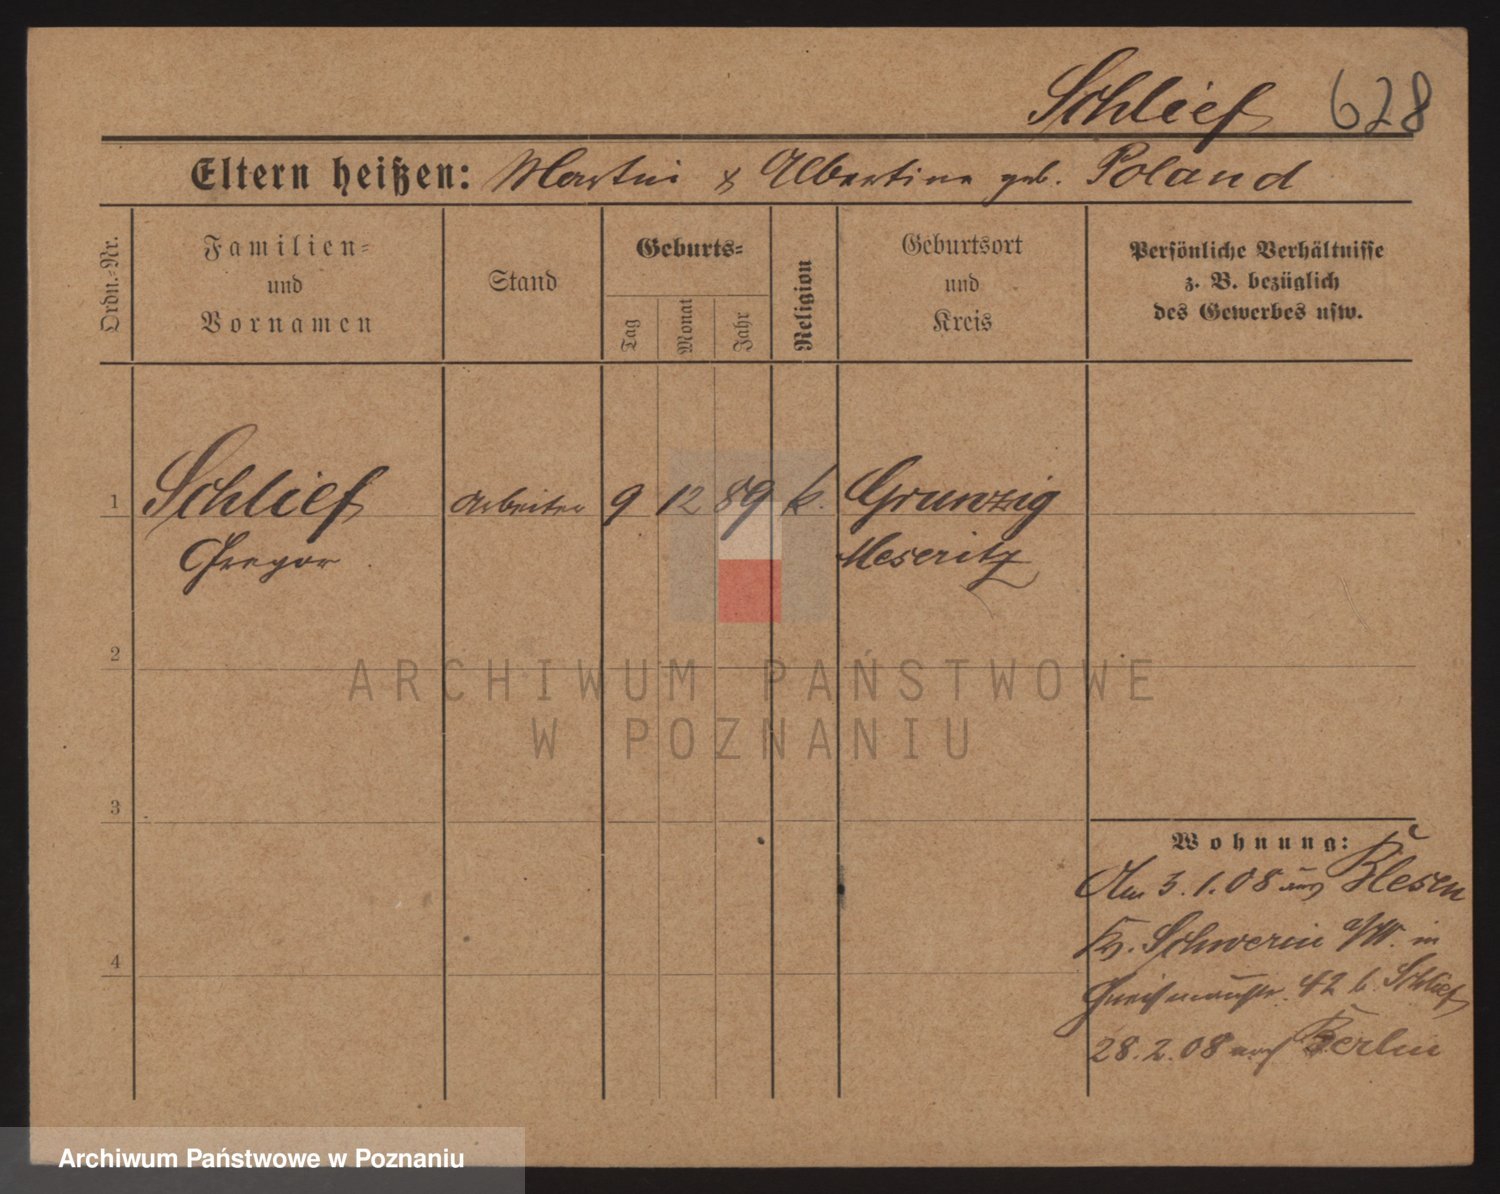 Schlief 628
Eltern heißen: Martin & Albertine geb. Poland
Ordn.-Nr.
Familien-
und
Vornamen
Stand
Geburts-
Tag
Monat
Jahr
Religion
Geburtsort
und
Kreis
Persönliche Verhältnisse
z. B. bezüglich
des Gewerbes usw.
1 Schlief Arbeiter 9 12 89 k. Grunzig
Gregor Meseritz
2
3
4
Wohnung:
Am 3.1.08 aus Blesen
Kr. Schwerin a/W. in
42 b. Schlief
28.2.08 nach Berlin
ARCHIWUM PAŃSTWOWE
W POZNANIU
Archiwum Państwowe w Poznaniu